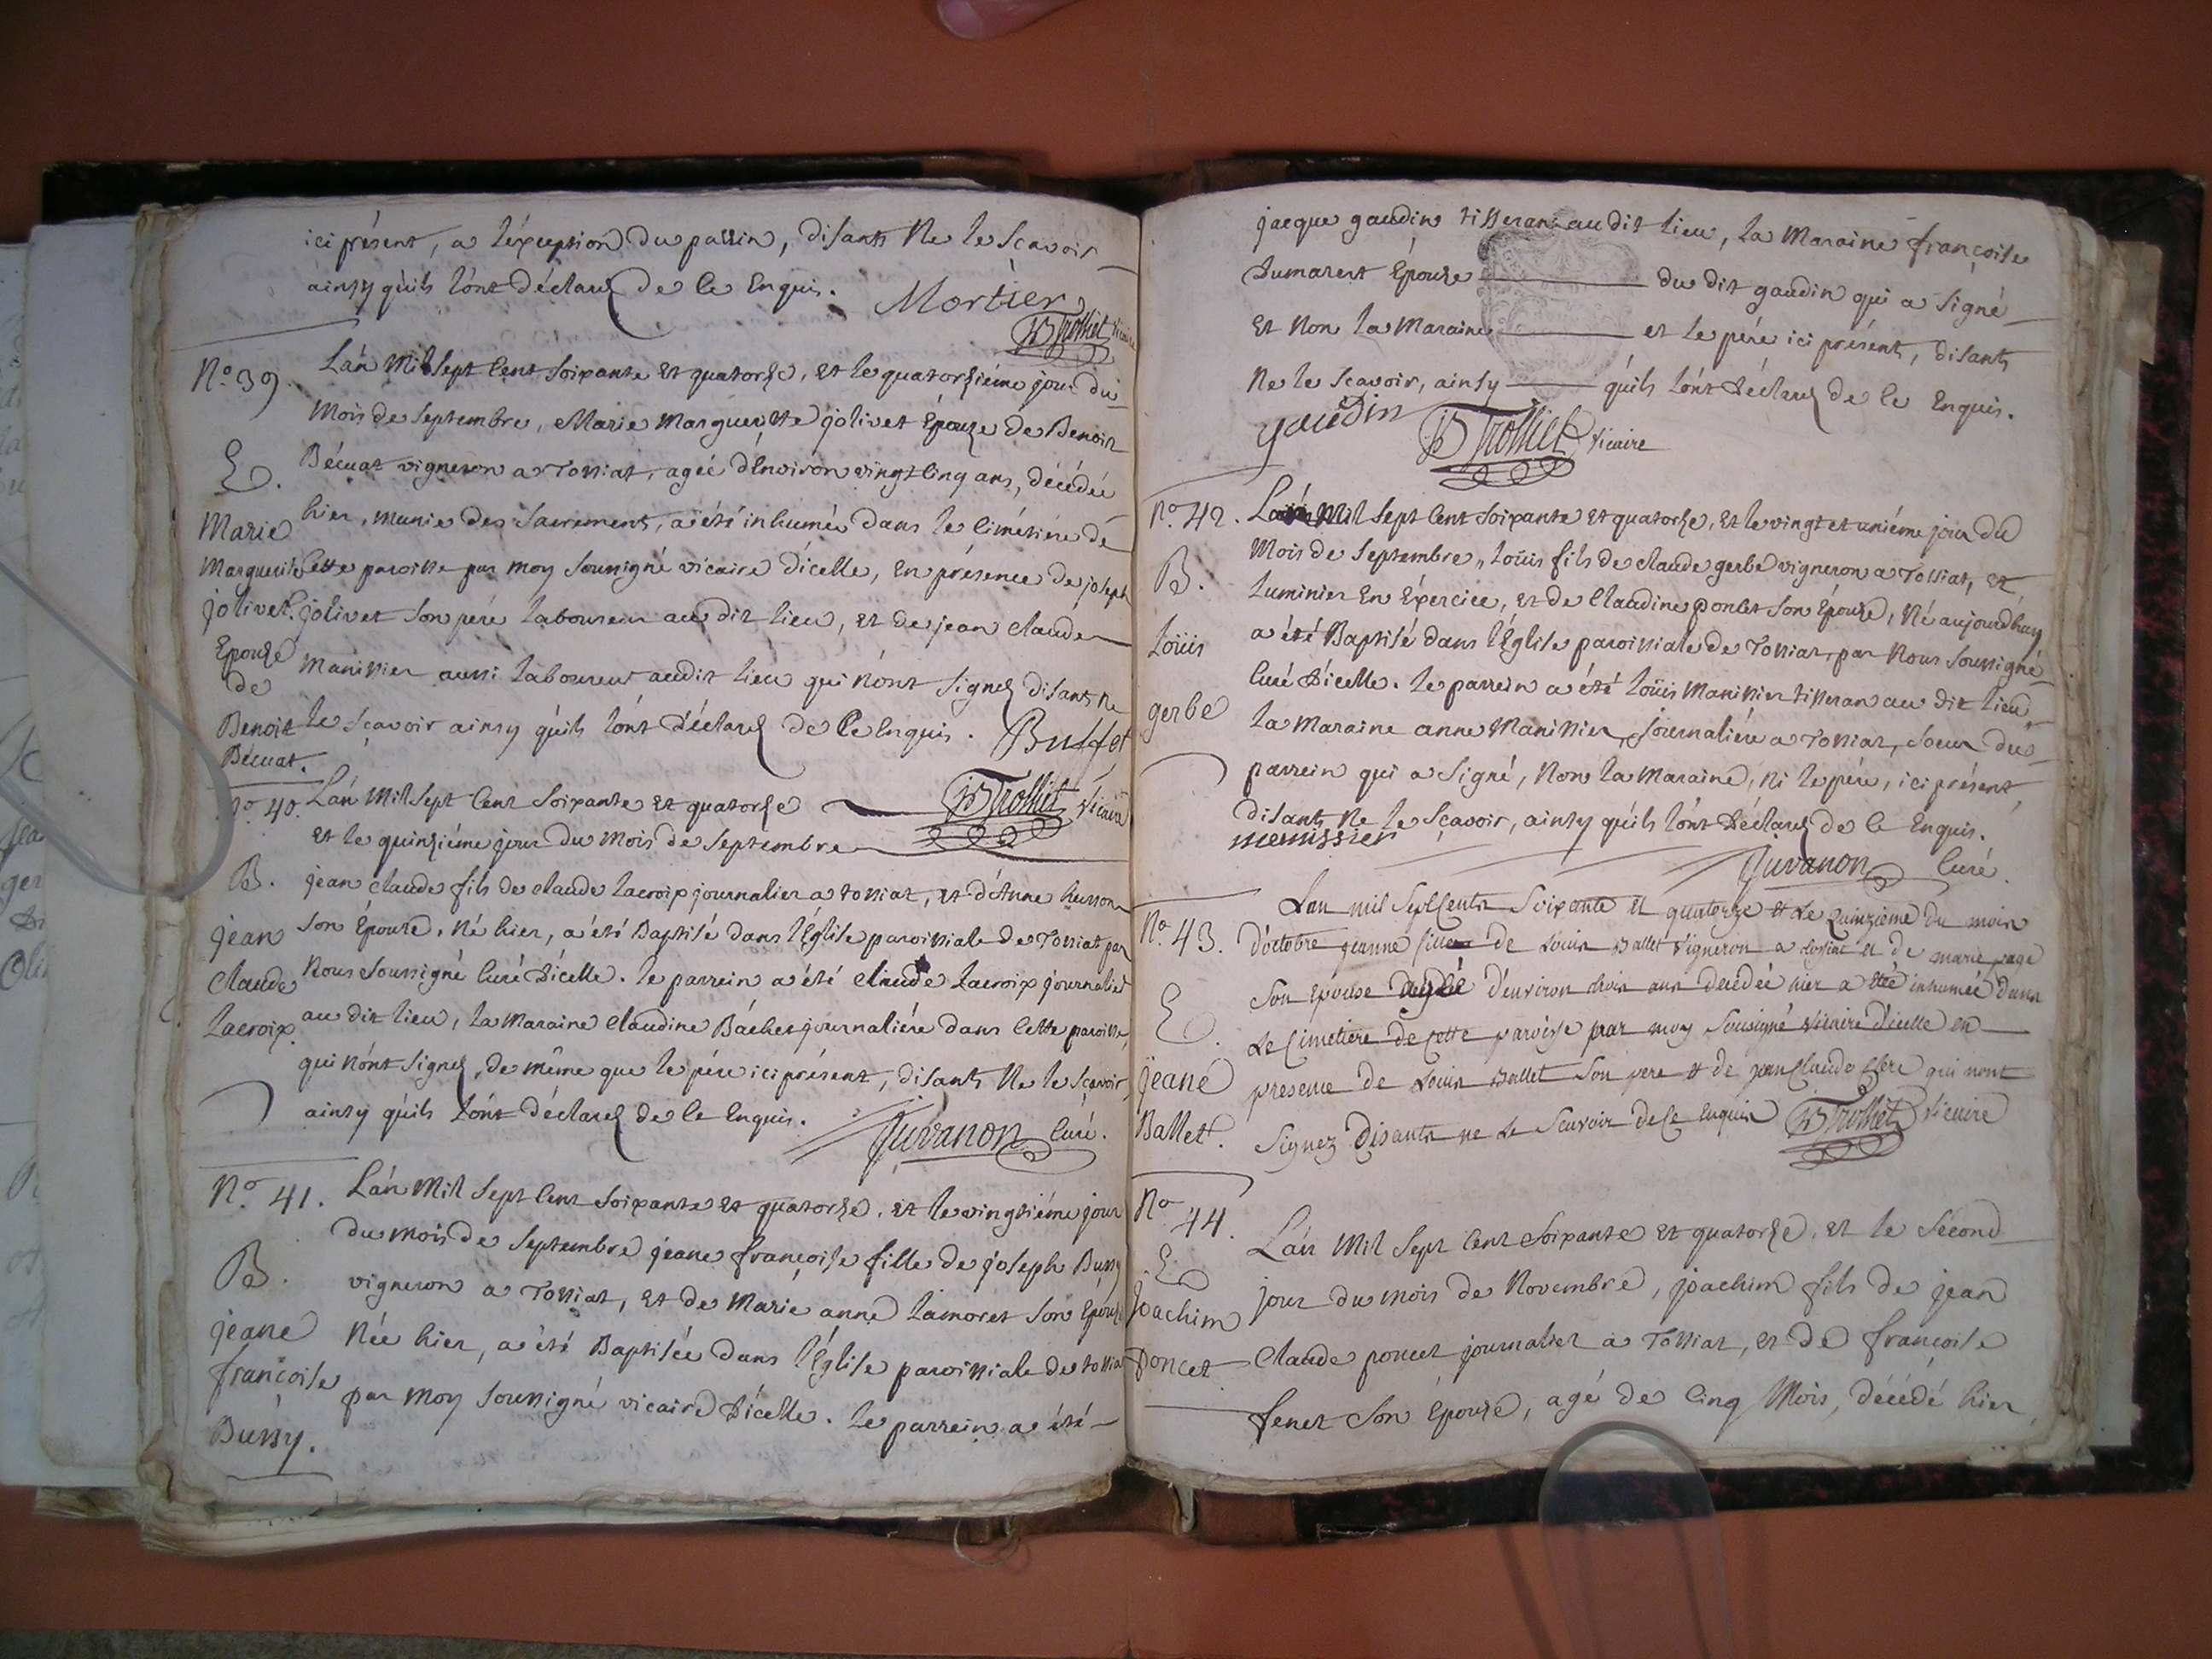 ici présent, a léxception du parrin, disants Ne le Sçavoir
ainsy qúils lónt déclaréz de Ce Enquis. Mortier
JB Trolliet Vicaire
No. 39. Lán Mil Sept Cent Soixante Et quatorze, Et le quatorziéme jour du
Mois de Septembre, Marie Margueritte jolivet Épouze de Benoit
E. Bécuat vigneron a Tossiat, agéé dEnviron vingt Cinq ans, décédéé
Marie hier, munie des Sacrements, a été inhumée dans le Cimétiére de
Marguerite Cette paroisse par moy Soussigné vicaire dícelle, En présence de joseph
jolivet. jolivet Son pére Laboureur au dit Lieu, Et de jean Claude
Epouze Manissier aussi Laboureur audit Lieu qui nónt Signéz disants ne
de
Benoit le Sçavoir ainsy qúils lónt déclaréz de Ce Enquis. Buffet
Bécuat.
No. 40. Lán Mil Sept Cent Soixante Et quatorze JB Trolliet Vicaire
Et le quinziéme jour du Mois de Septembre
B. jean Claude fils de Claude Lacroix journalier a tossiat, et d'Anne
jean Son Épouze, Né hier, a été Baptisé dans lÉglise paroissiale de Tossiat par
Claude Nous Soussigné Curé dícelle. le parrein a été Claude Lacroix journalier
Lacroix. au dit Lieu, la Maraine Claudine journaliére dans Cette paroisse,
qui nónt Signéz, de même que le pére ici présent, disants Ne le Scavoir,
ainsy qúils lónt déclaréz de Ce Enquis.
Juvanon Curé.
No. 41. Lán Mil Sept Cent Soixante Et quatorze, et le vingtiéme jour
du mois de Septembre jeane françoise fille de joseph Bussy
B. vigneron a Tossiat, Et de Marie anne Lamoret Son Epouze
jeane Née hier, a été Baptisée dans lÉglise paroissiale de tossiat
françoise par moy Soussigné vicaire dícelle. le parrein a été
Bussy.
jacque gaudin tisseran au dit Lieu, la Maraine françoise
Dumarest Epouze du dit gaudin qui a Signé
Et Non la Maraine et le pére ici présent, disants
Ne le Scavoir, ainsy qúils lónt déclaréz de Ce Enquis.
gaudin JB Trolliet Vicaire
No. 42. Lán Mil Sept Cent Soixante Et quatorze, Et le vingt et uniéme jour du
Mois de Septembre, Loüis fils de Claude gerbe vigneron a Tossiat, Et
B. Luminier En Éxercice, et de Claudine poncet Son Épouze, Né aujourdhuy
Loüis a été Baptisé dans lÉglise paroissiale de Tossiat, par Nous Soussigné
Curé dícelle. le parrein a été Loüis Manissier tisseran au dit Lieu,
gerbe la Maraine anne Manissier, journaliére a Tossiat, Soeur du
parrein qui a Signé, Non la Maraine, Ni le pére, ici présent,
disants Ne le Sçavoir, ainsy qúils lónt déclaréz de Ce Enquis.
menissier
Juvanon Curé.
Lan mil Sept Cents Soixante et quatorze et Le Quinzieme du mois
No. 43. d'octobre jeanne fille de Louis Ballet vigneron a tossiat et de marie page
Son Epouse agée d'environ trois ans decedée hier a été inhumée dans
E. Le Cimetiere de Cette paroisse par moy Sousigné Vicaire d'icelle en
jeane presence de Louis Ballet Son pere et de jean Claude qui nont
Ballet. Signez Disants ne Le Scavoir de Ce Enquis JB Trolliet Vicaire
No. 44. Lán Mil Sept Cent Soixante Et quatorze, Et le Second
E.
Joachim jour du mois de Novembre, joachim fils de jean
poncet Claude poncet journalier a Tossiat, et de françoise
fenet Son Épouze, agé de Cinq Mois, décédé hier,